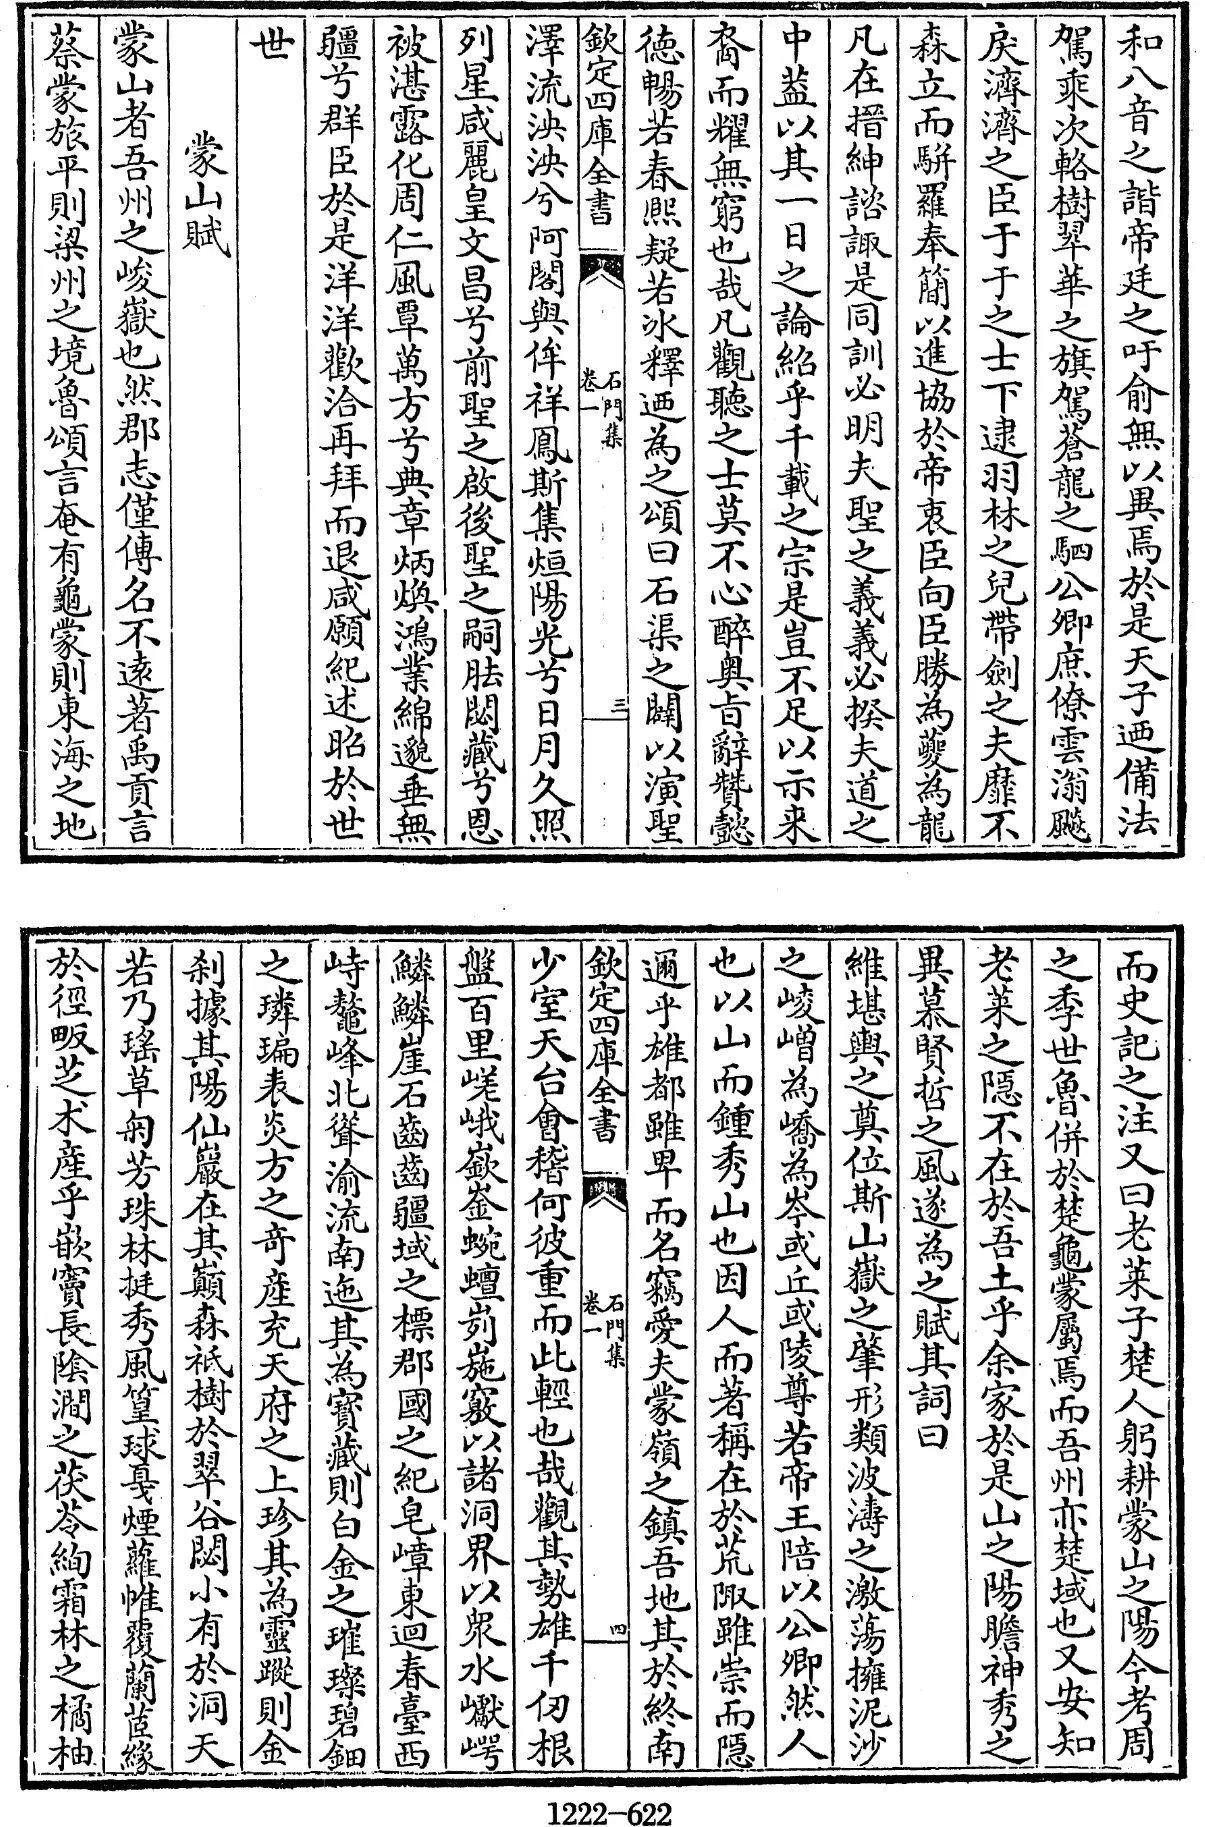 和八音之諧帝廷之吁俞無以異焉於是天子迺備法
駕乘次輅樹翠華之旗駕蒼龍之駟公卿庶僚雲滃飈
戾濟濟之臣于于之士下逮羽林之兒帶劍之夫靡不
森立而駢羅奉簡以進協於帝衷臣向臣勝為夔為龍
凡在搢紳諮諏是同訓必明夫聖之義義必揆夫道之
中葢以其一日之論紹乎千載之宗是豈不足以示来
裔而燿無窮也哉凡觀聽之士莫不心醉奥旨辭贊懿
徳暢若春熈疑若冰釋迺為之頌曰石渠之闢以演聖
欽定四庫全書
石門集
卷一
三
澤流泱泱兮阿閣與侔祥鳳斯集烜陽光兮日月久照
列星咸麗皇文昌兮前聖之啟後聖之嗣胠閟藏兮恩
被湛露化周仁風覃萬方兮典章炳煥鴻業綿邈垂無
疆兮群臣於是洋洋歡洽再拜而退咸願紀述昭於世
世
蒙山賦
蒙山者吾州之峻嶽也然郡志僅傳名不逺著禹貢言
蔡蒙旅平則梁州之境魯頌言奄有龜蒙則東海之地
而史記之注又曰老萊子楚人躬耕蒙山之陽今考周
之季世魯併於楚龜蒙屬焉而吾州亦楚域也又安知
老萊之隠不在於吾土乎余家於是山之陽瞻神秀之
異慕賢哲之風遂為之賦其詞曰
維堪輿之奠位斯山嶽之肇形類波濤之激蕩擁泥沙
之崚嶒為嶠為岑或丘或陵尊若帝王陪以公卿然人
也以山而鍾秀山也因人而著稱在於荒陬雖崇而隠
邇乎雄都雖卑而名竊愛夫蒙嶺之鎮吾地其於終南
欽定四庫全書
石門集
卷一
四
少室天台會稽何彼重而此輕也哉觀其勢雄千仞根
盤百里嵯峨嶔崟蜿蟺峛崺竅以諸洞界以衆水巘崿
鱗鱗崖石齒齒疆域之標郡國之紀皂嶂東迴春臺西
峙鼇峰北聳渝流南迤其為寶藏則白金之璀璨碧鈿
之璘㻞表炎方之竒産充天府之上珍其為靈蹤則金
刹據其陽仙巖在其巔森祇樹於翠谷閟小有於洞天
若乃瑤草匊芳珠林挺秀風篁球戛煙蘿帷覆蘭茝緣
於徑畈芝朮産乎嵌竇長陰澗之茯苓絢霜林之橘柚
1222-622